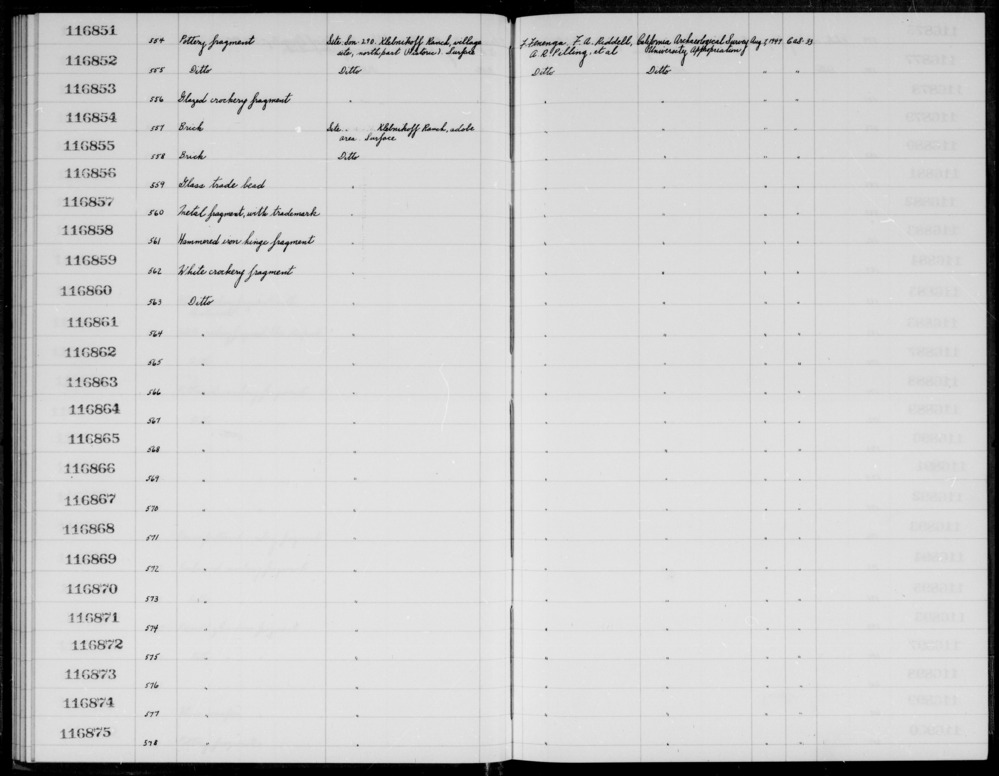 116851 554 Pottery fragment Site Son-290, Klebnikoff Ranch, village F. Fenenga, F. A. Riddell, California Archaeological Survey Aug 5, 1949 CAS-33
site, north part (Historic) Surface A. R. Pilling, et al (University Appropriation)
116852 555 Ditto Ditto Ditto Ditto " "
116853 556 Glazed crockery fragment " " " " "
116854 557 Brick Site " Klebnikoff Ranch, adobe " " " "
area. Surface
116855 558 Brick Ditto " " " "
116856 559 Glass trade bead " " " " "
116857 560 Metal fragment, with trademark " " " " "
116858 561 Hammered iron hinge fragment " " " " "
116859 562 White crockery fragment " " " " "
116860 563 Ditto " " " " "
116861 564 " " " " " "
116862 565 " " " " " "
116863 566 " " " " " "
116864 567 " " " " " "
116865 568 " " " " " "
116866 569 " " " " " "
116867 570 " " " " " "
116868 571 " " " " " "
116869 572 " " " " " "
116870 573 " " " " " "
116871 574 " " " " " "
116872 575 " " " " " "
116873 576 " " " " " "
116874 577 " " " " " "
116875 578 " " " " " "